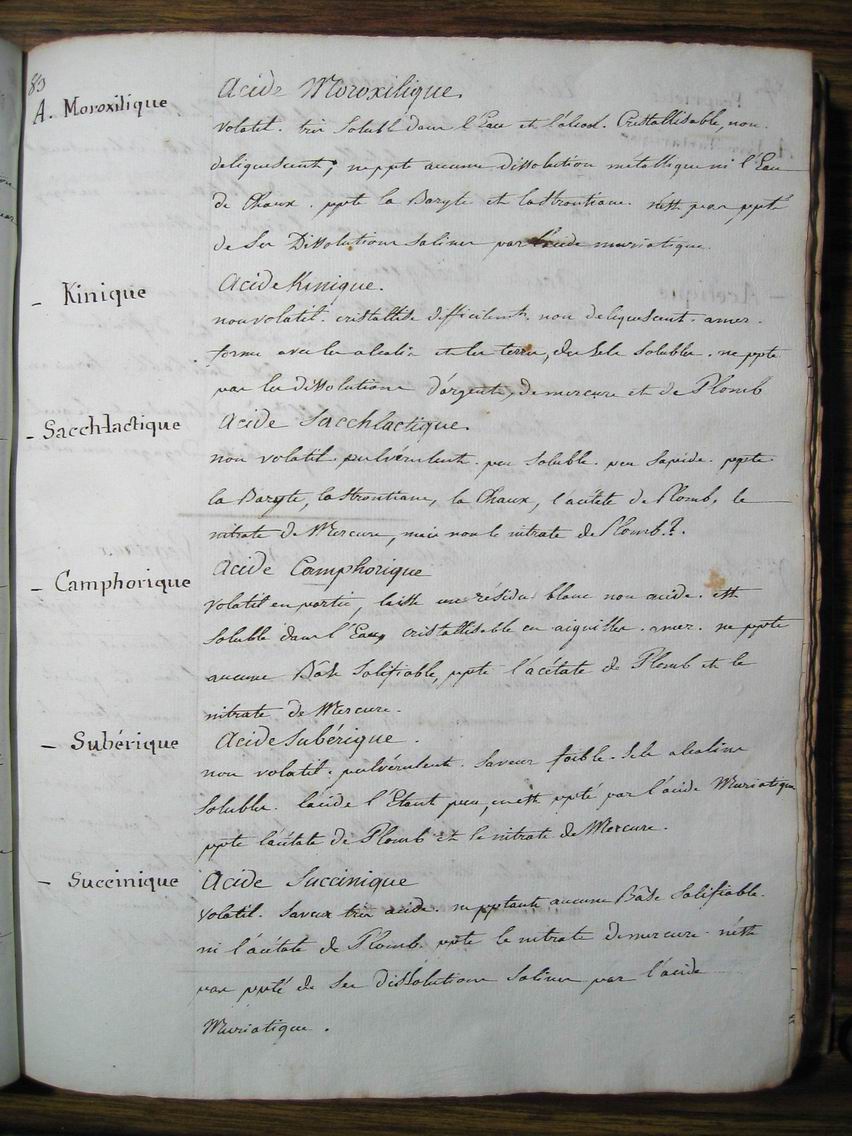 83
A. Moroxilique
Acide Moroxilique.
volatil. très soluble dans l'Eau et l'alcool. Cristallisable, non
deliquescent, ne ppte aucune dissolution métallique ni l'Eau
de Chaux. ppte la Baryte et la Strontiane. n'est pas ppté
de ses Dissolutions salines par l'acide muriatique.
- Kinique
Acide Kinique.
non volatil. cristallise difficilement. non deliquescent. amer.
forme avec les alcalis et les terres, des Sels solubles. ne ppte
pas les dissolutions d'argent, de mercure et de Plomb
- Sacchlactique
Acide Sacchlactique.
non volatil. pulvérulent. peu soluble. peu sapide. ppte
la Baryte, la Strontiane, la Chaux, l'acétate de Plomb, le
nitrate de Mercure, mais non le nitrate de Plomb?.
- Camphorique
Acide Camphorique
volatil en partie, laisse un résidu blanc non acide. est
soluble dans l'Eau, cristallisable en aiguilles. amer. ne ppte
aucune Bâse Salifiable, ppte l'acétate de Plomb et le
nitrate de Mercure.
- Subérique
Acide Subérique.
non volatil. pulvérulent. Saveur foible. Sels alcalins
solubles. l'acide l'Etant peu, est ppté par l'acide Muriatique
ppte l'acétate de Plomb et le nitrate de Mercure.
- Succinique
Acide Succinique
volatil. Saveur très acide. ne pptante aucune Bâse Salifiable.
ni l'acétate de Plomb. ppte le nitrate de mercure. n'est
pas ppté de ses dissolutions salines par l'acide
Muriatique.